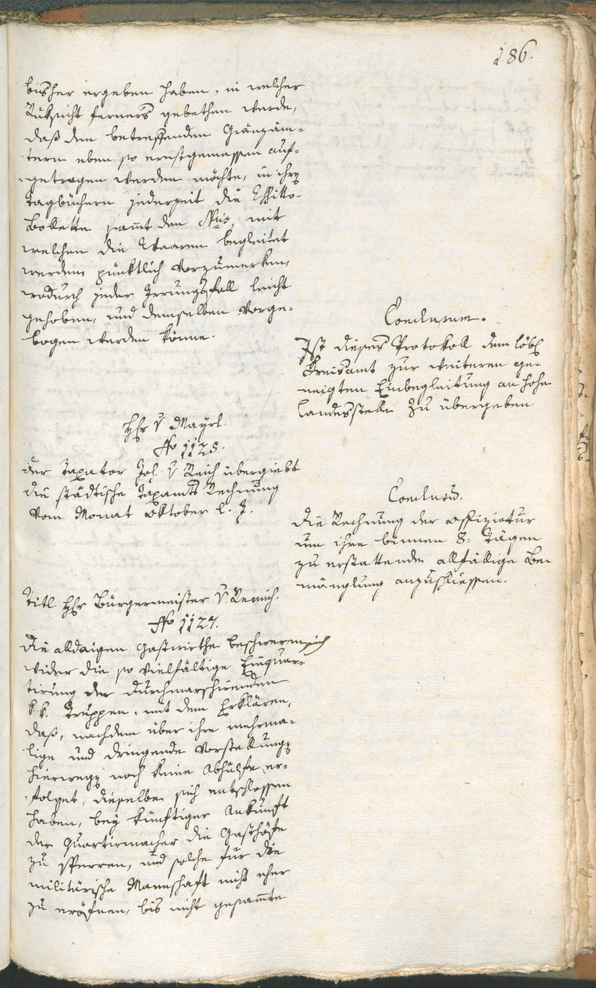 186.
bisher ergeben haben, in welcher
Rüksicht ferners gebethen werde,
daß den betreffenden Gränzäm-
tern eben so ernstgemessen auf-
getragen werden möchte, in ihren
Tagbüchern jederzeit die Essitto-
Bollette sammt den Nris mit
welchen die Waaren begleitet
werden pünktlich vorzumerken,
wodurch jeder Irrungsfall leicht
gehoben, und demselben vorge-
bogen werden könne.
Conclusum.
Ist dieses Protokoll dem löbl
Kreisamt zur weiteren ge-
neigten Einbegleitung an hohe
Landesstelle zu übergeben
Hr v Mayrl.
No 1125.
Der Taxator Joh. v Reich übergiebt
die städtische Taxamts Rechnung
vom Monat Oktober l. J.
Conclusum.
Die Rechnung der Offiziatur
um ihre binnen 8: Tägen
zu erstattende allfällige Be-
mänglung anzuschliessen.
Titl Hr Bürgermeister v Remich.
No 1127.
Die alldaigen Gastwirthe beschweren sich
wider die so vielfältige Einquar-
tirung der durchmarschirenden
k.k. Truppen, mit dem Erklären,
daß, nachdem über ihre mehrma-
lige und dringende Vorstellung
hierwegen noch keine Abhülfe er-
folget, dieselben sich entschlossen
haben, bey künftiger Ankunft
der Quartirmacher die Gasthöfe
zu sperren, und solche für die
militärische Mannschaft nicht eher
zu eröfnen, bis nicht gesammte